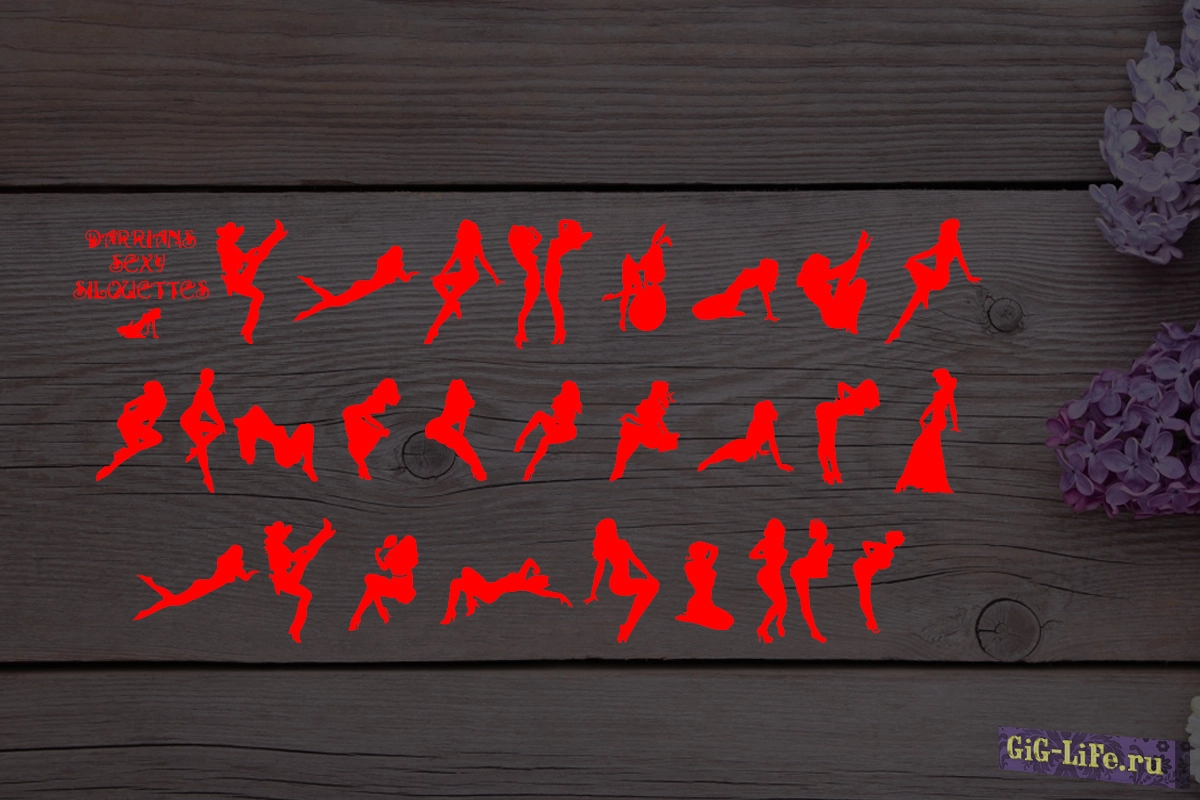 DARRIANS
SEXY
SILOUETTES
GiG-LiFe.ru